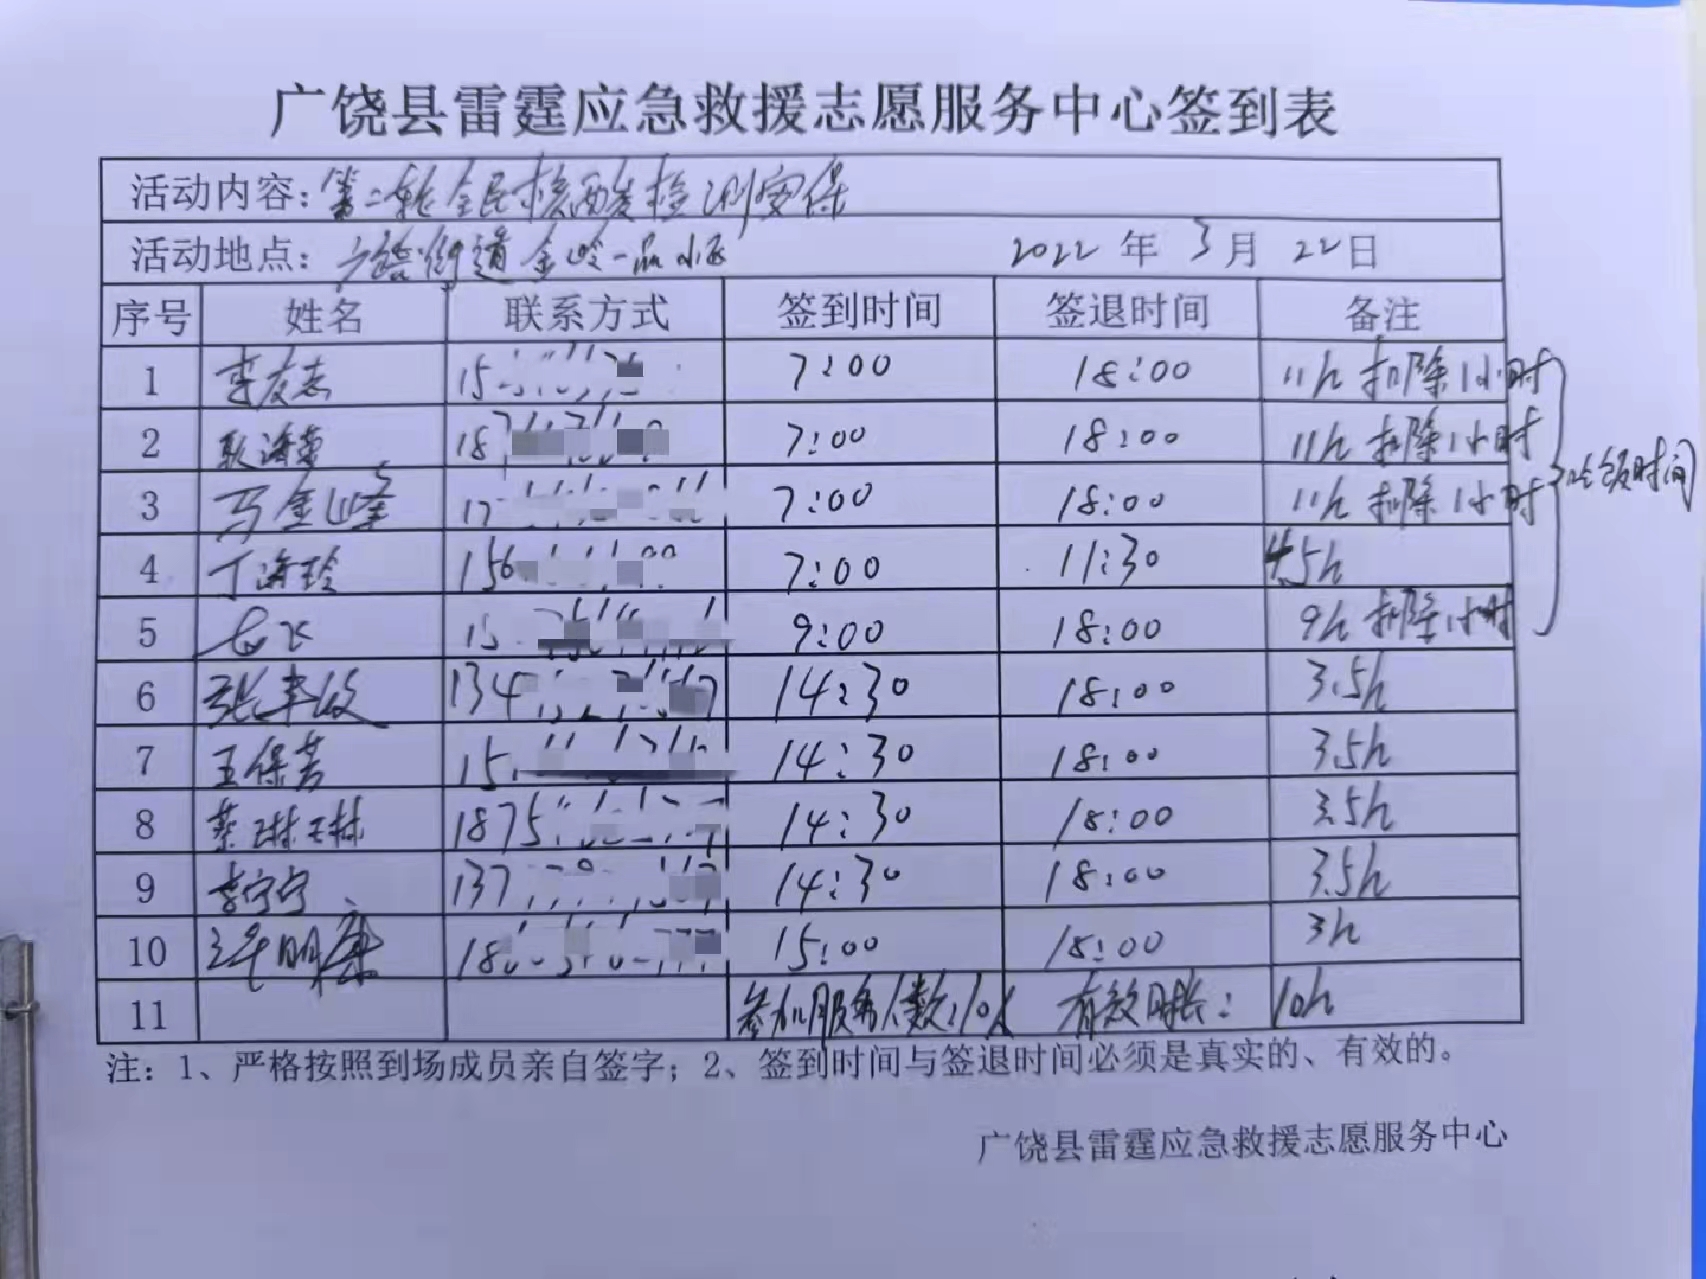 广饶县雷霆应急救援志愿服务中心签到表
活动内容：第二轮全民核酸检测安保
活动地点：广饶街道金岭一品小区 2022年3月22日
序号 姓名 联系方式 签到时间 签退时间 备注
1 李友志 15 7:00 18:00 11h 扣除1小时
2 耿海荣 18 7:00 18:00 11h 扣除1小时
3 马金峰 17 7:00 18:00 11h 扣除1小时 吃饭时间
4 丁海玲 156 7:00 11:30 4.5h
5 15 9:00 18:00 9h 扣除1小时
6 134 14:30 18:00 3.5h
7 王保芳 15 14:30 18:00 3.5h
8 蔡琳琳 1875 14:30 18:00 3.5h
9 李宁宁 137 14:30 18:00 3.5h
10 18 15:00 18:00 3h
11 参加服务人数:10人 有效时长: 10h
注：1、严格按照到场成员亲自签字；2、签到时间与签退时间必须是真实的、有效的。
广饶县雷霆应急救援志愿服务中心